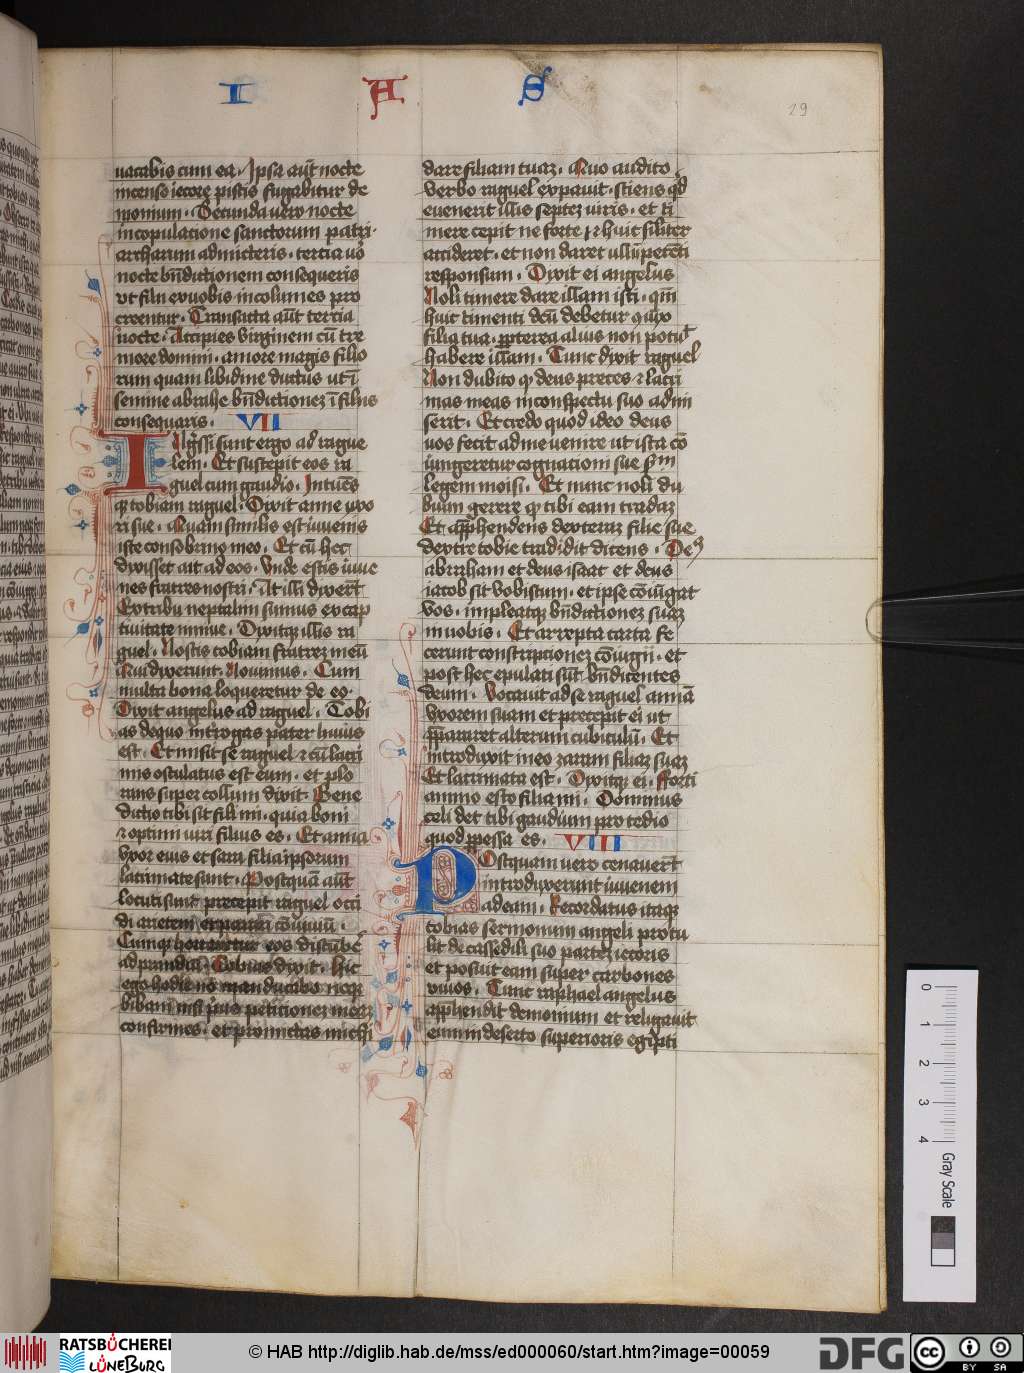 I A S
29
uacabis cum ea. Ipsa aūt nocte
incenso iecore piscis fugabitur de
monium. Secunda uero nocte
in copulatione sanctorum patri
archarum admitteris. tercia uo
nocte bn̄dictionem consequeris
vt filii ex uobis incolumes pro
creentur. Transacta aūt tercia
nocte. Accipies virginem cū tre
more domini. amore magis filio
rum quam libidine ductus ut ī
semine abrahe bn̄dictionez ī filiis
consequaris. VII
Ingressi sunt ergo ad rague
lem. Et suscepit eos ra
guel cum gaudio. Intuēs
qz tobiam raguel. Dixit anne uxo
ri sue. Quam similis est iuuenis
iste consobrino meo. Et cū hec
dixisset ait ad eos. Vnde estis iuue
nes fratres nostri. At illi dixert
Ex tribu neptalim sumus ex cap
tiuitate niniue. Dixitqz illis ra
guel. Nostis tobiam fratrez meū
Qui dixerunt. Nouimus. Cum
multa bona loqueretur de eo.
Dixit angelus ad raguel. Tobi
as de quo interrogas pater huius
est. Et misit se raguel ⁊ cū lacri
mis osculatus est eum. et plo
rans super collum dixit. Bene
dictio tibi sit fili mi. quia boni
⁊ optimi uiri filius es. Et anna
vxor eius et sara filia ipsorum
lacrimate sunt. Postquā aūt
locuti sunt precepit raguel occi
di arietem et parari cōuiuiū.
Cumqz hortaretur eos discūbe
ad prandiū. Tobias dixit. Hic
ego hodie nō manducabo neqz
bibam nisi prius peticionez meaz
confirmes. et promittas michi
dare filiam tuaz. Quo audito
verbo raguel expauit. sciens qd
euenerit illis septez uiris. et ti
mere cepit ne forte ⁊ huic similiter
accideret. et non daret ullū petēti
responsum. Dixit ei angelus
Noli timere dare illam isti. qm̄
huic timenti deū debetur coniux
filia tua. propterea alius non potuit
habere illam. Tunc dixit raguel
Non dubito qz deus preces ⁊ lacri
mas meas in conspectu suo admi
serit. Et credo quod ideo deus
uos fecit ad me uenire ut ista cō
iungeretur cognationi sue scdm
legem moisi. Et nunc noli du
bium gerere qz tibi eam tradaz
Et apprehendens dexteraz filie sue
dextre tobie tradidit dicens. Deus
abraham et deus isaac et deus
iacob sit vobiscum. et ipse cōiūgat
vos. impleatqz bn̄dictionez suaz
in uobis. Et arrepta carta fe
cerunt conscriptionez cōiugii. et
post hec epulati sūt bn̄dicentes
deum. Vocauit ad se raguel annā
vxorem suam et precepit ei ut
prepararet alterum cubiculū. Et
introduxit in eo zaram filiaz suaz
Et lacrimata est. Dixitqz ei. Forti
animo esto filia mi. Dominus
celi det tibi gaudium pro tedio
quod perpessa es. VIII
Postquam uero cenauert
introduxerunt iuuenem
ad eam. Recordatus itaqz
tobias sermonum angeli protu
lit de cassedili suo partez iecoris
et posuit eam super carbones
viuos. Tunc raphael angelus
apprehendit demonium et religauit
eum in deserto superioris egipti
0 1 2 3 4
Gray Scale
RATSBÜCHEREI
LÜNEBURG
© HAB http://diglib.hab.de/mss/ed000060/start.htm?image=00059
DFG
cc BY SA